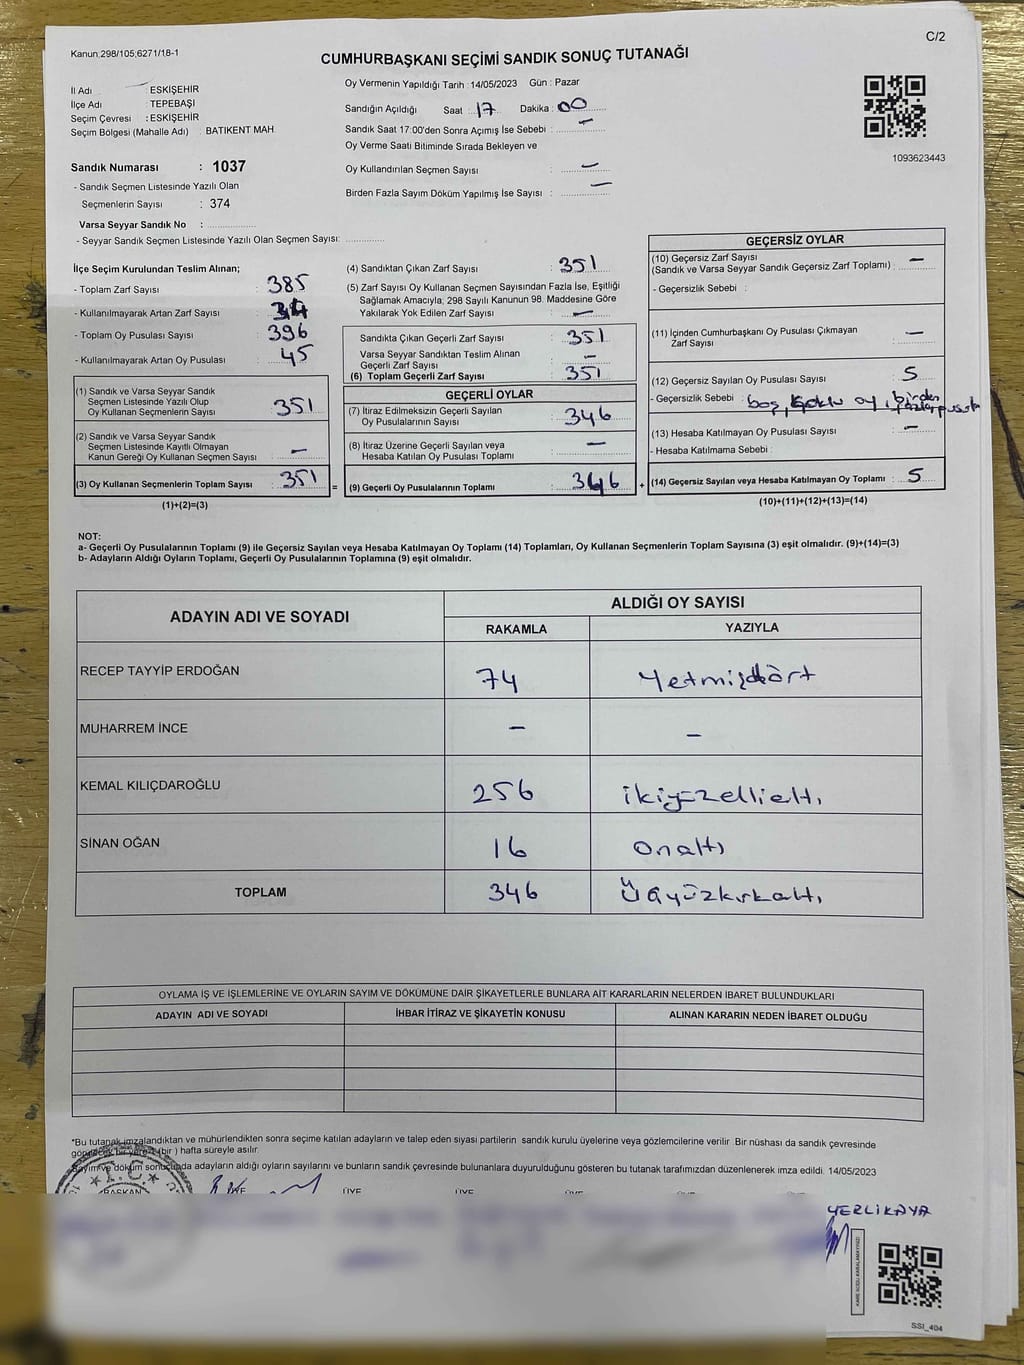 Kanun;298/105;6271/18-1
C/2
CUMHURBAŞKANI SEÇİMİ SANDIK SONUÇ TUTANAĞI
İl Adı : ESKİŞEHİR
İlçe Adı : TEPEBAŞI
Seçim Çevresi : ESKİŞEHİR
Seçim Bölgesi (Mahalle Adı) : BATIKENT MAH.
Sandık Numarası : 1037
- Sandık Seçmen Listesinde Yazılı Olan
Seçmenlerin Sayısı : 374
Varsa Seyyar Sandık No :
- Seyyar Sandık Seçmen Listesinde Yazılı Olan Seçmen Sayısı:
Oy Vermenin Yapıldığı Tarih : 14/05/2023 Gün : Pazar
Sandığın Açıldığı Saat : 17 Dakika : 00
Sandık Saat 17:00'den Sonra Açımış İse Sebebi : —
Oy Verme Saati Bitiminde Sırada Bekleyen ve
Oy Kullandırılan Seçmen Sayısı : —
Birden Fazla Sayım Döküm Yapılmış İse Sayısı : —
1093623443
İlçe Seçim Kurulundan Teslim Alınan;
- Toplam Zarf Sayısı : 385
- Kullanılmayarak Artan Zarf Sayısı :
- Toplam Oy Pusulası Sayısı : 396
- Kullanılmayarak Artan Oy Pusulası : 45
(1) Sandık ve Varsa Seyyar Sandık
Seçmen Listesinde Yazılı Olup
Oy Kullanan Seçmenlerin Sayısı : 351
(2) Sandık ve Varsa Seyyar Sandık
Seçmen Listesinde Kayıtlı Olmayan
Kanun Gereği Oy Kullanan Seçmen Sayısı : —
(3) Oy Kullanan Seçmenlerin Toplam Sayısı : 351 =
(1)+(2)=(3)
(4) Sandıktan Çıkan Zarf Sayısı : 351
(5) Zarf Sayısı Oy Kullanan Seçmen Sayısından Fazla İse, Eşitliği
Sağlamak Amacıyla; 298 Sayılı Kanunun 98. Maddesine Göre
Yakılarak Yok Edilen Zarf Sayısı : —
Sandıkta Çıkan Geçerli Zarf Sayısı : 351
Varsa Seyyar Sandıktan Teslim Alınan
Geçerli Zarf Sayısı : —
(6) Toplam Geçerli Zarf Sayısı : 351
GEÇERLİ OYLAR
(7) İtiraz Edilmeksizin Geçerli Sayılan
Oy Pusulalarının Sayısı : 346
(8) İtiraz Üzerine Geçerli Sayılan veya
Hesaba Katılan Oy Pusulası Toplamı : —
(9) Geçerli Oy Pusulalarının Toplamı : 346 +
GEÇERSİZ OYLAR
(10) Geçersiz Zarf Sayısı : —
(Sandık ve Varsa Seyyar Sandık Geçersiz Zarf Toplamı)
- Geçersizlik Sebebi :
(11) İçinden Cumhurbaşkanı Oy Pusulası Çıkmayan
Zarf Sayısı : —
(12) Geçersiz Sayılan Oy Pusulası Sayısı : 5
- Geçersizlik Sebebi : boş, oy, birden
fazla pusula
(13) Hesaba Katılmayan Oy Pusulası Sayısı : —
- Hesaba Katılmama Sebebi :
(14) Geçersiz Sayılan veya Hesaba Katılmayan Oy Toplamı : 5
(10)+(11)+(12)+(13)=(14)
NOT:
a- Geçerli Oy Pusulalarının Toplamı (9) ile Geçersiz Sayılan veya Hesaba Katılmayan Oy Toplamı (14) Toplamları, Oy Kullanan Seçmenlerin Toplam Sayısına (3) eşit olmalıdır. (9)+(14)=(3)
b- Adayların Aldığı Oyların Toplamı, Geçerli Oy Pusulalarının Toplamına (9) eşit olmalıdır.
ADAYIN ADI VE SOYADI
ALDIĞI OY SAYISI
RAKAMLA YAZIYLA
RECEP TAYYİP ERDOĞAN 74 Yetmişdört
MUHARREM İNCE — —
KEMAL KILIÇDAROĞLU 256 ikiyüzellialtı
SİNAN OĞAN 16 onaltı
TOPLAM 346 Üçyüzkırkaltı
OYLAMA İŞ VE İŞLEMLERİNE VE OYLARIN SAYIM VE DÖKÜMÜNE DAİR ŞİKAYETLERLE BUNLARA AİT KARARLARIN NELERDEN İBARET BULUNDUKLARI
ADAYIN ADI VE SOYADI İHBAR İTİRAZ VE ŞİKAYETİN KONUSU ALINAN KARARIN NEDEN İBARET OLDUĞU
*Bu tutanak imzalandıktan ve mühürlendikten sonra seçime katılan adayların ve talep eden siyasi partilerin sandık kurulu üyelerine veya gözlemcilerine verilir. Bir nüshası da sandık çevresinde
görülecek bir yere 1 (bir ) hafta süreyle asılır.
Sayım ve döküm sonucunda adayların aldığı oyların sayılarını ve bunların sandık çevresinde bulunanlara duyurulduğunu gösteren bu tutanak tarafımızdan düzenlenerek imza edildi. 14/05/2023
T.C.
BAŞKAN ÜYE ÜYE ÜYE ÜYE
YERLİKAYA
KARE KODU KARALAMAYINIZ!
SSI_404